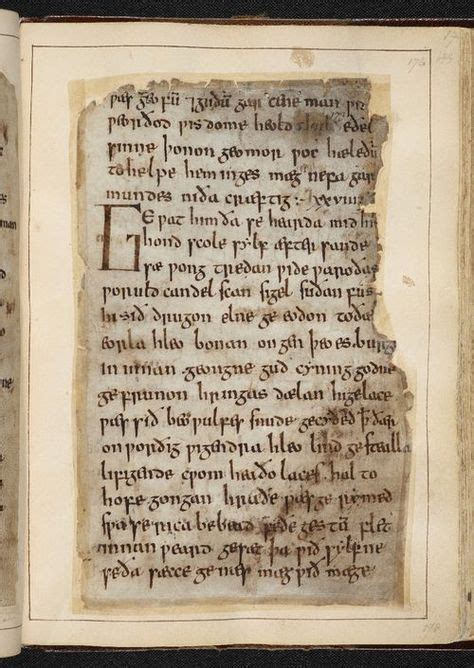 ƿæs geofū ⁊ guðū gar cene man ƿi
ƿeorðod ƿisdome heold eðel
sinne þonon geomor ƿoc hæleðū
to helpe heminges mæg nefa gar
mundes niða cræftig :· xxviii
Geƿat him ða se hearda mid hi
hond scole sylf æfter sande
sæ ƿong tredan ƿide ƿaroðas
ƿoruld candel scan sigel suðan fus
hi sið drugon elne ge eodon to ðæ
eorla hleo bonan on gen þeoes burg
in innan geongne guð cyning godne
gefrunon hringas dælan higelace
ƿæs sið beoƿulfes snude gecyðed ꝥ ðær
on ƿorðig ƿigendra hleo lind gestealla
lifigende cƿom heaðo laces hal to
hofe gongan hraðe ƿæs ge rymed
sƿa se rica be bead feðe gestū flet
innan ƿeard gesæt þa ƿið sylfne
se ða sæcce ge næs mæg ƿið mæge